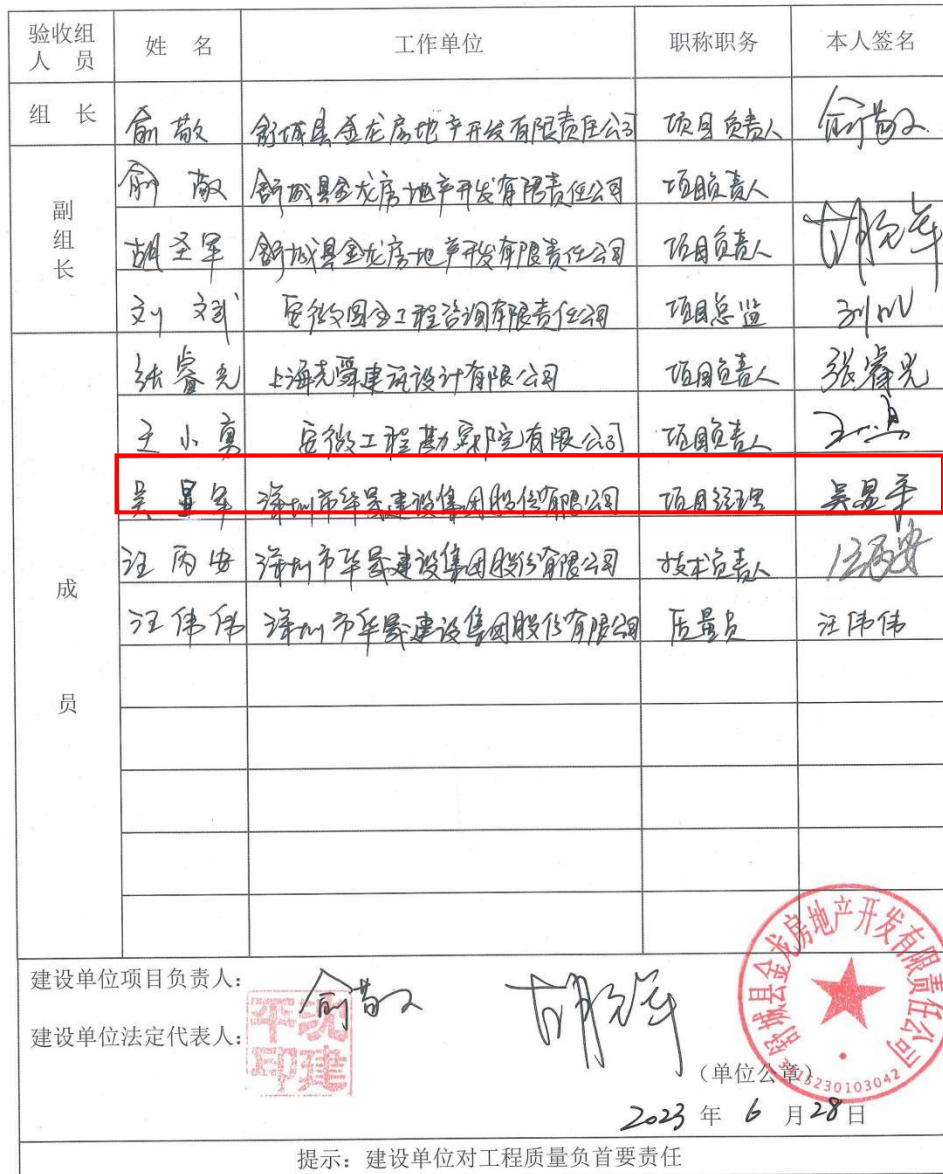 验收组人员 姓 名 工作单位 职称职务 本人签名
组 长 俞敬 舒城县金龙房地产开发有限责任公司 项目负责人 俞敬
副组长 俞敬 舒城县金龙房地产开发有限责任公司 项目负责人
胡圣军 舒城县金龙房地产开发有限责任公司 项目负责人 胡圣军
刘文斌 工程咨询有限责任公司 项目总监
成员 张睿光 上海尧舜建筑设计有限公司 项目负责人 张睿光
王小勇 安徽工程勘察院有限公司 项目负责人
吴显军 漳州市华晟建设集团股份有限公司 项目经理 吴显军
汪丙安 漳州市华晟建设集团股份有限公司 技术负责人 汪丙安
汪伟伟 漳州市华晟建设集团股份有限公司 质量员 汪伟伟
建设单位项目负责人: 俞敬 胡圣军
建设单位法定代表人:
平沈
印建
舒城县金龙房地产开发有限责任公司
(单位公章)
2023 年 6 月 28 日
提示:建设单位对工程质量负首要责任